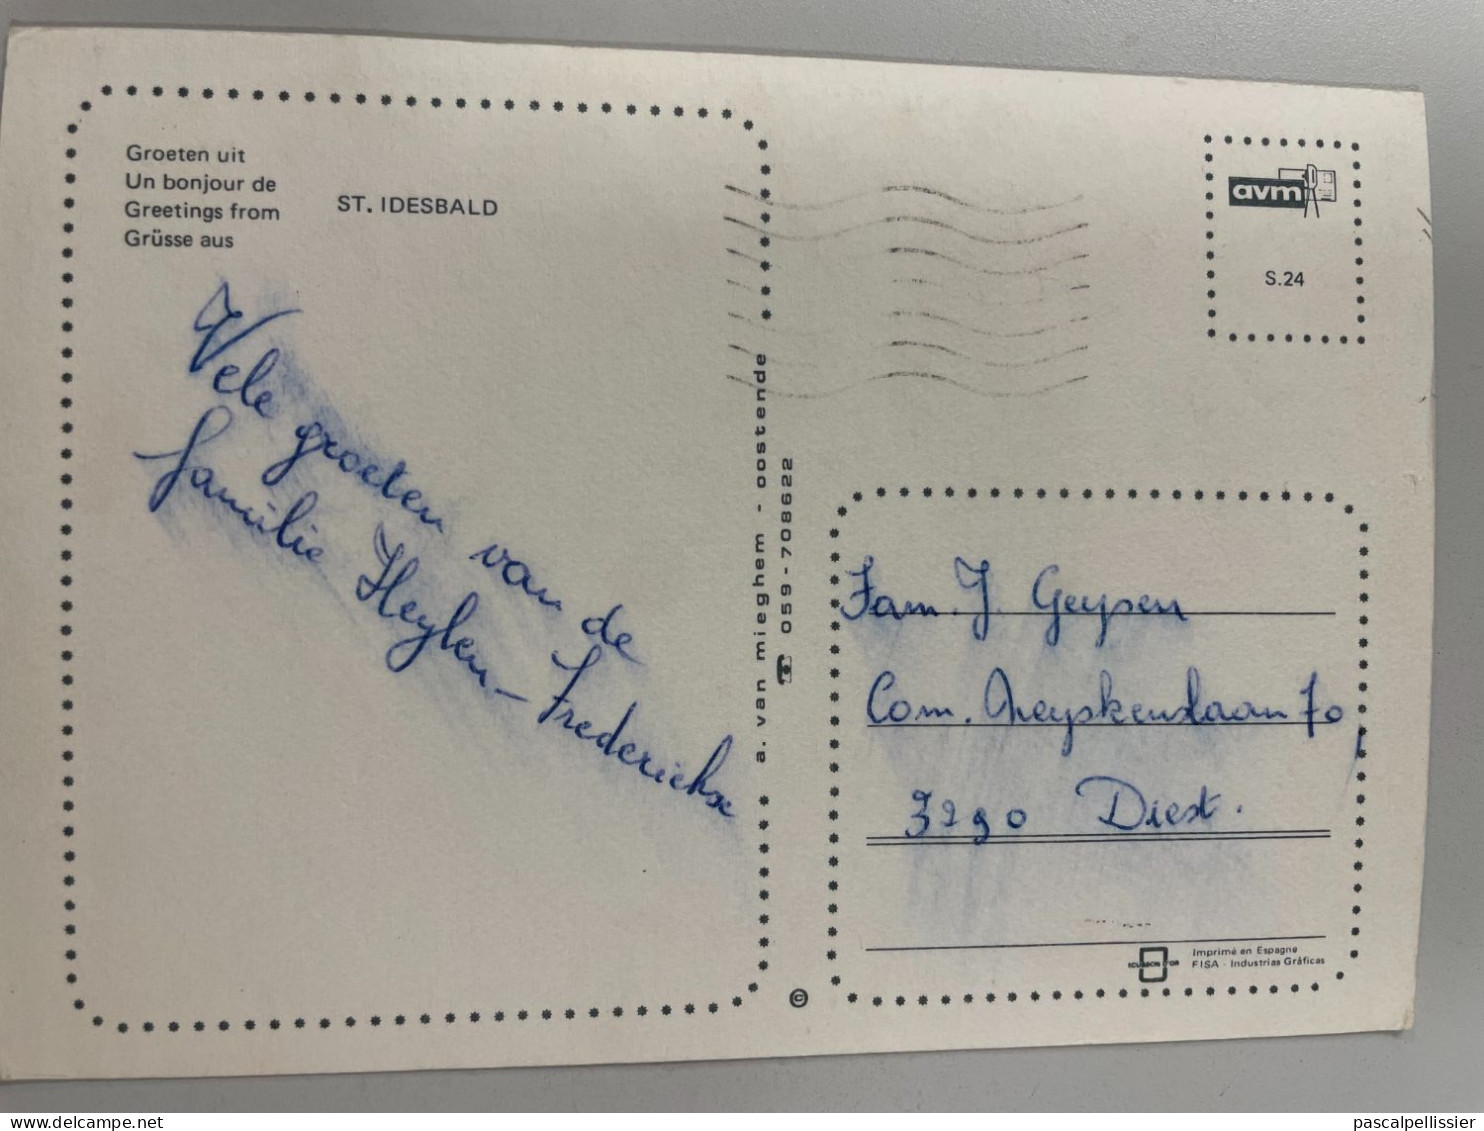 Groeten uit
Un bonjour de
Greetings from
Grüsse aus
ST. IDESBALD
Vele groeten van de
familie Heylen-Frederickx
a. van mieghem - oostende
059-708622
avm
S.24
Fam. J. Geysen
Com. Neyskenslaan 70
3290 Diest.
Imprimé en Espagne
FISA - Industrias Gráficas
©
pascalpellissier